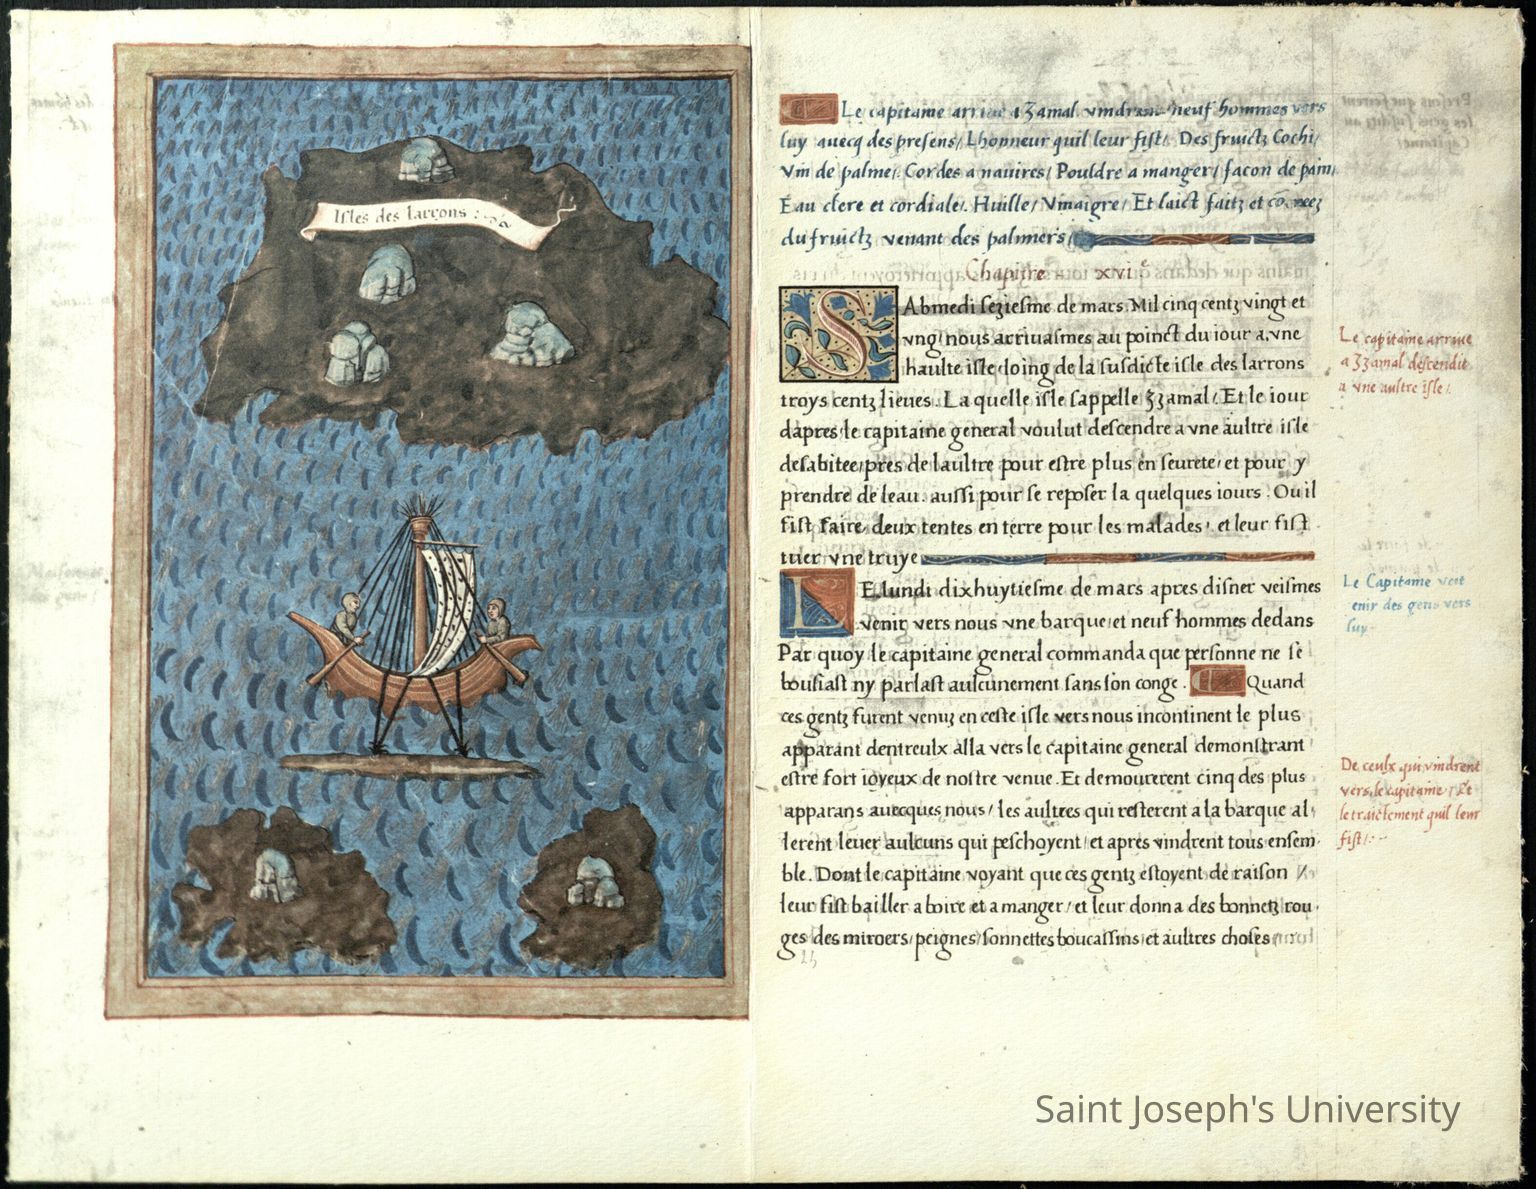 Isles des larrons
Le capitaine arriue a Zzamal vindrent neuf hommes vers
luy auecq des presens/ Lhonneur quil leur fist/. Des fruictz Cochi/
Vin de palme/. Cordes a nauires/ Pouldre a manger/ facon de pain/
Eau clere et cordiale/. Huille/ Vinaigre/ Et laict faitz et
du fruictz venant des palmiers/
Chapitre xvi.e
SAbmedi seziesme de mars Mil cinq centz vingt et
vng/ nous arriuasmes au poinct du iour a vne
haulte isle loing de la susdicte isle des larrons
troys centz lieues. La quelle isle sappelle Zzamal/. Et le iour
dapres/ le capitaine general voulut descendre a vne aultre isle
desabitee/ pres de laultre pour estre plus en seurete/ et pour y
prendre de leau. aussi pour se reposer la quelques iours. Ou il
fist faire deux tentes en terre pour les malades/ et leur fist
tuer vne truye
LE lundi dixhuytiesme de mars apres disner veismes
venir vers nous vne barque et neuf hommes dedans
Par quoy le capitaine general commanda que personne ne se
bousiast ny parlast aulcunement sans son conge. Quand
ces gentz furent venuz en ceste isle vers nous incontinent le plus
apparant dentreulx alla vers le capitaine general demonstrant
estre fort ioyeux de nostre venue. Et demourerent cinq des plus
apparans auecques nous/ les aultres qui resterent a la barque al
lerent leuer aulcuns qui peschoyent/ et apres vindrent tous ensem
ble. Dont le capitaine voyant que ces gentz estoyent de raison
leur fist bailler a boire et a manger/ et leur donna des bonnetz rou
ges des miroers/ peignes/ sonnettes boucassins et aultres choses
Le capitaine arriue
a Zzamal descendit
a vne aultre isle/.
Le Capitaine veit
venir des gens vers
luy
De ceulx qui vindrent
vers le capitaine/ Et
le traictement quil leur
fist/.
Saint Joseph's University